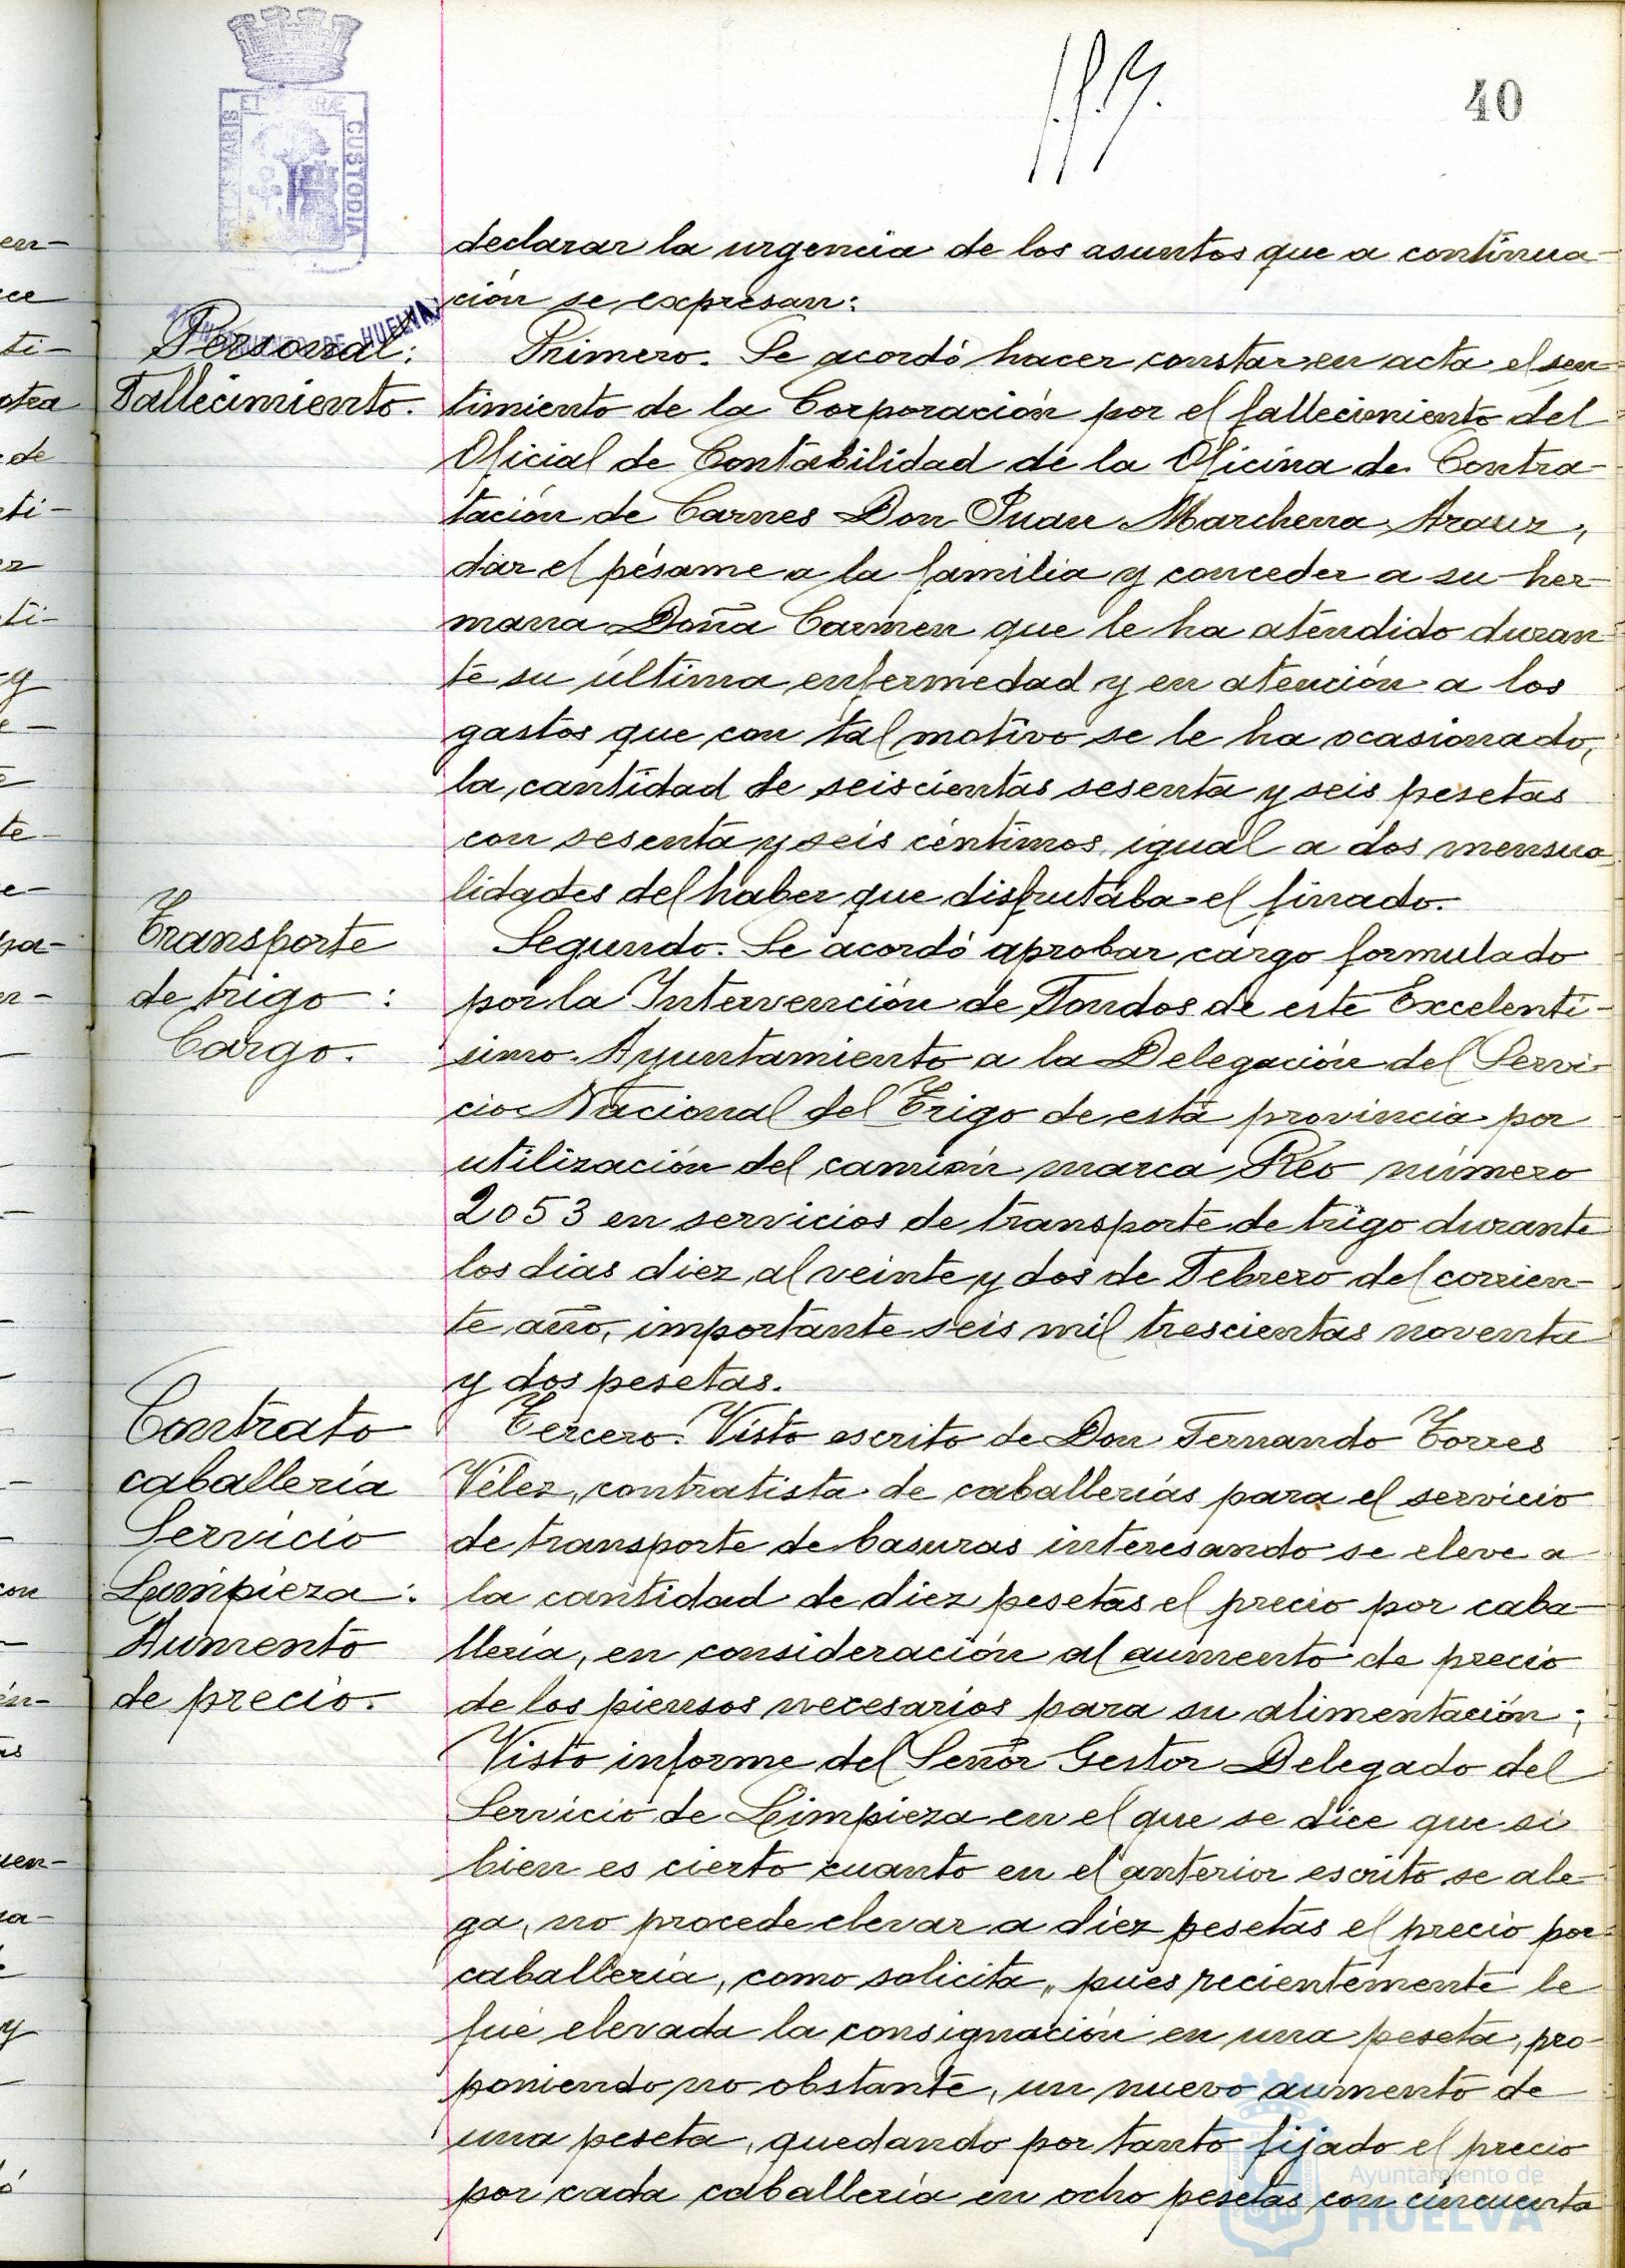 40
declarar la urgencia de los asuntos que a continua-
ción se expresan:
Personal:
Fallecimiento.
Primero. Se acordó hacer constar en acta el sen-
timiento de la Corporación por el fallecimiento del
Oficial de Contabilidad de la Oficina de Contra-
tación de Carnes Don Juan Marchena Arauz,
dar el pésame a la familia y conceder a su her-
mana Doña Carmen que le ha atendido duran-
te su última enfermedad y en atención a los
gastos que con tal motivo se le ha ocasionado,
la cantidad de seiscientas sesenta y seis pesetas
con sesenta y seis céntimos, igual a dos mensua-
lidades del haber que disfrutaba el finado.
Transporte
de trigo:
Cargo.
Segundo. Se acordó aprobar cargo formulado
por la Intervención de Fondos de este Excelentí-
simo Ayuntamiento a la Delegación del Servi-
cio Nacional del Trigo de esta provincia por
utilización del camión marca Reo número
2053 en servicios de transporte de trigo durante
los días diez al veinte y dos de Febrero del corrien-
te año, importante seis mil trescientas noventa
y dos pesetas.
Contrato
caballería
Servicio
Limpieza:
Aumento
de precio.
Tercero. Visto escrito de Don Fernando Torres
Vélez, contratista de caballerías para el servicio
de transporte de basuras interesando se eleve a
la cantidad de diez pesetas el precio por caba-
llería, en consideración al aumento de precio
de los piensos necesarios para su alimentación;
Visto informe del Señor Gestor Delegado del
Servicio de Limpieza en el que se dice que si
bien es cierto cuanto en el anterior escrito se ale-
ga, no procede elevar a diez pesetas el precio por
caballería, como solicita, pues recientemente le
fué elevada la consignación en una peseta, pro-
poniendo no obstante, un nuevo aumento de
una peseta, quedando por tanto fijado el precio
por cada caballería en ocho pesetas con cincuenta
CUSTODIA
DE HUELVA
Ayuntamiento de
HUELVA